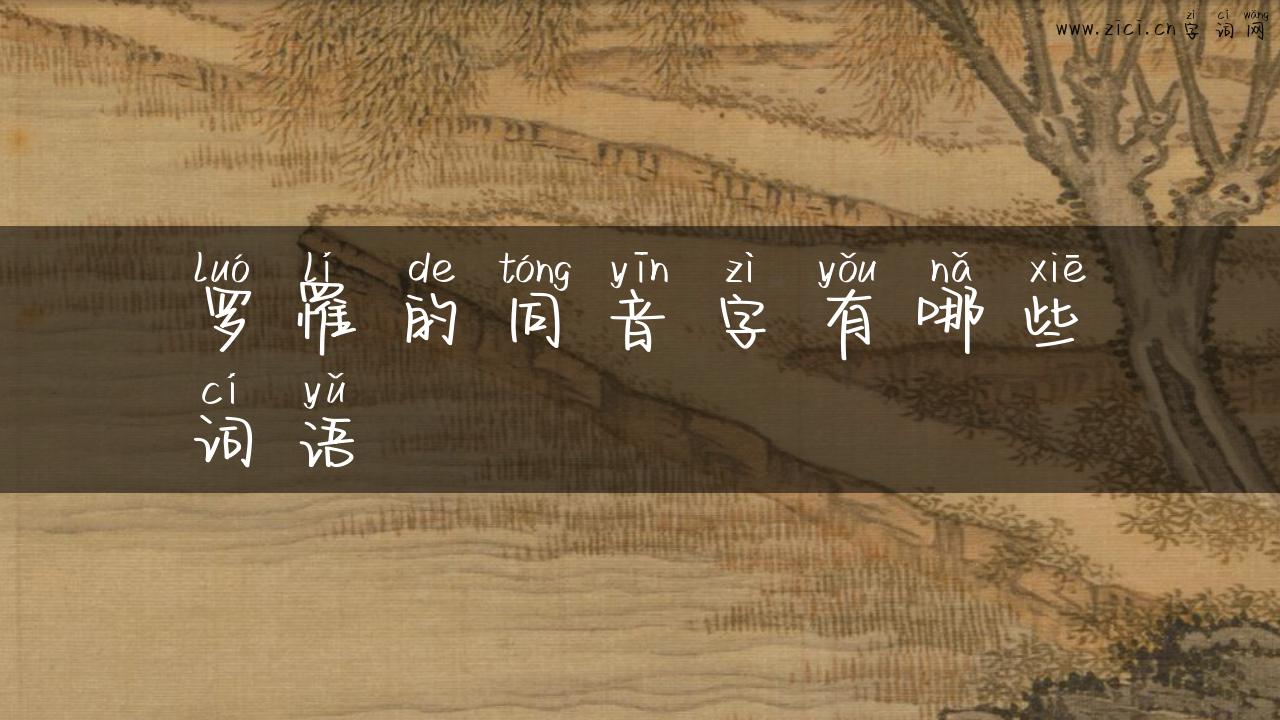 zì cí wǎng
www.zici.cn字词网
luó lí de tóng yīn zì yǒu nǎ xiē
罗罹的同音字有哪些
cí yǔ
词语